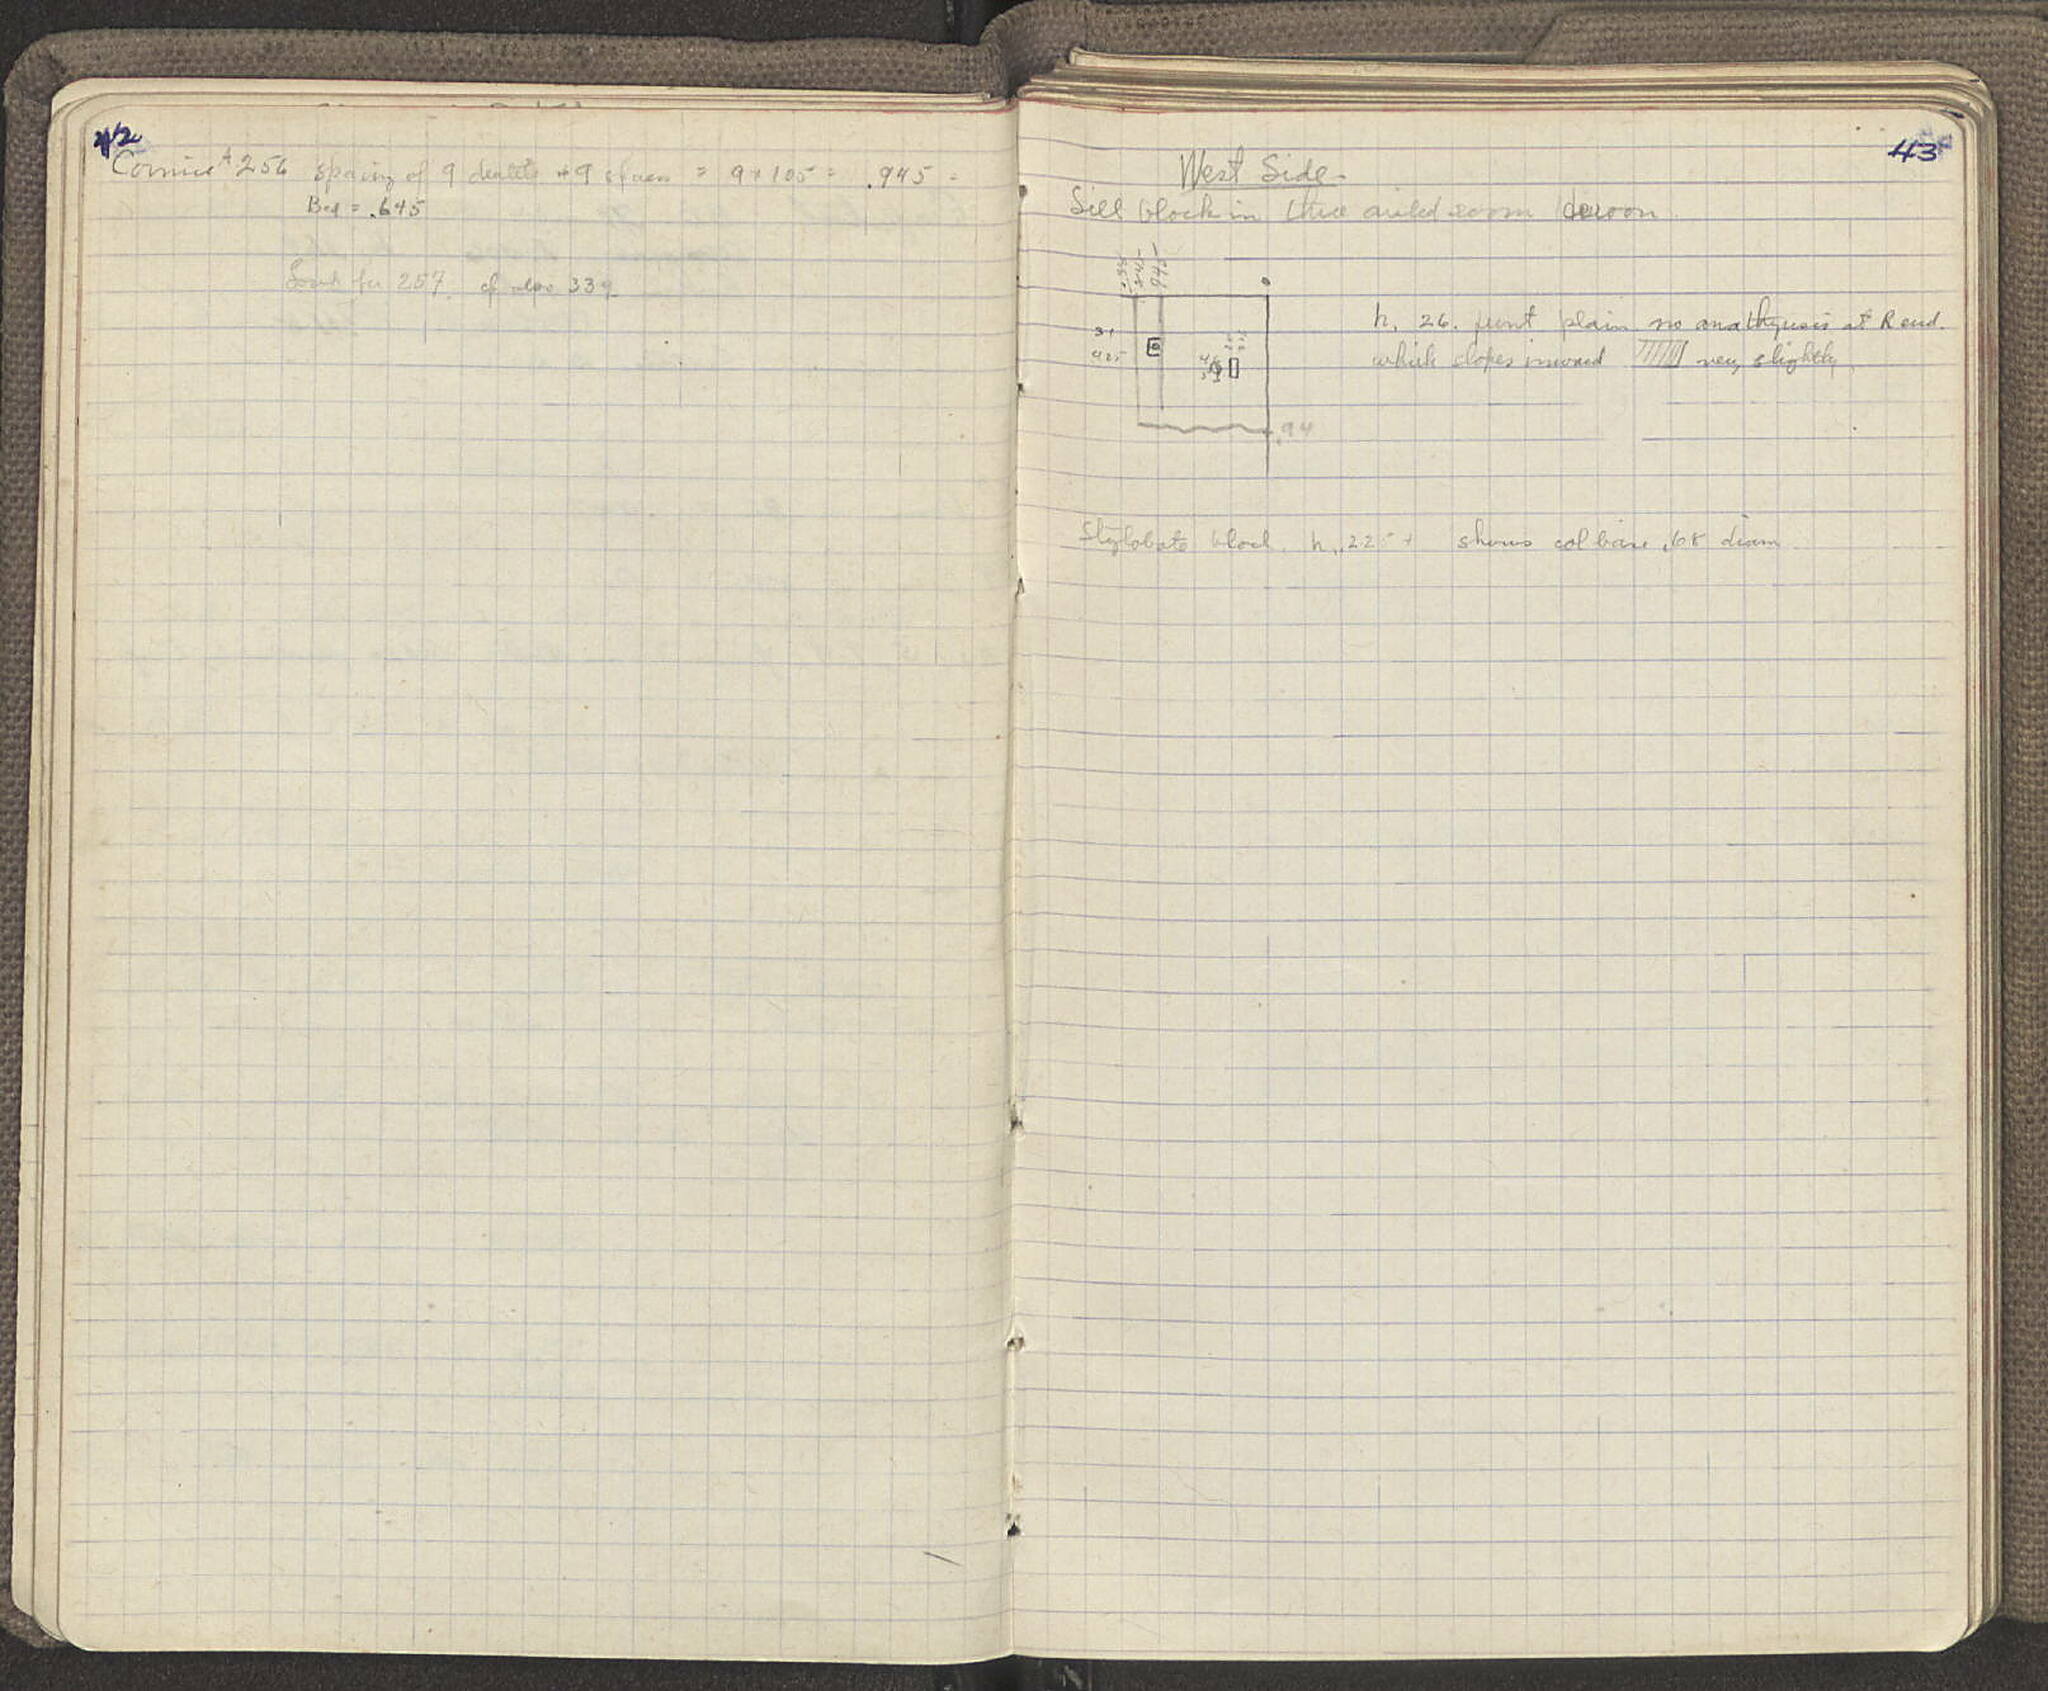 42
Cornice A 256 spacing of 9 dentils + 9 spaces = 9 × 105 = .945 =
Bed = .645
Look for 257. cf also 339
43
West Side.
Sill block in three aisled room
.245
.945
31
425
.94
h. .26. joint plain no anathyrosis at R end.
which slopes inward very slightly.
Stylobate block. h. .225 + shows col base .68 diam.